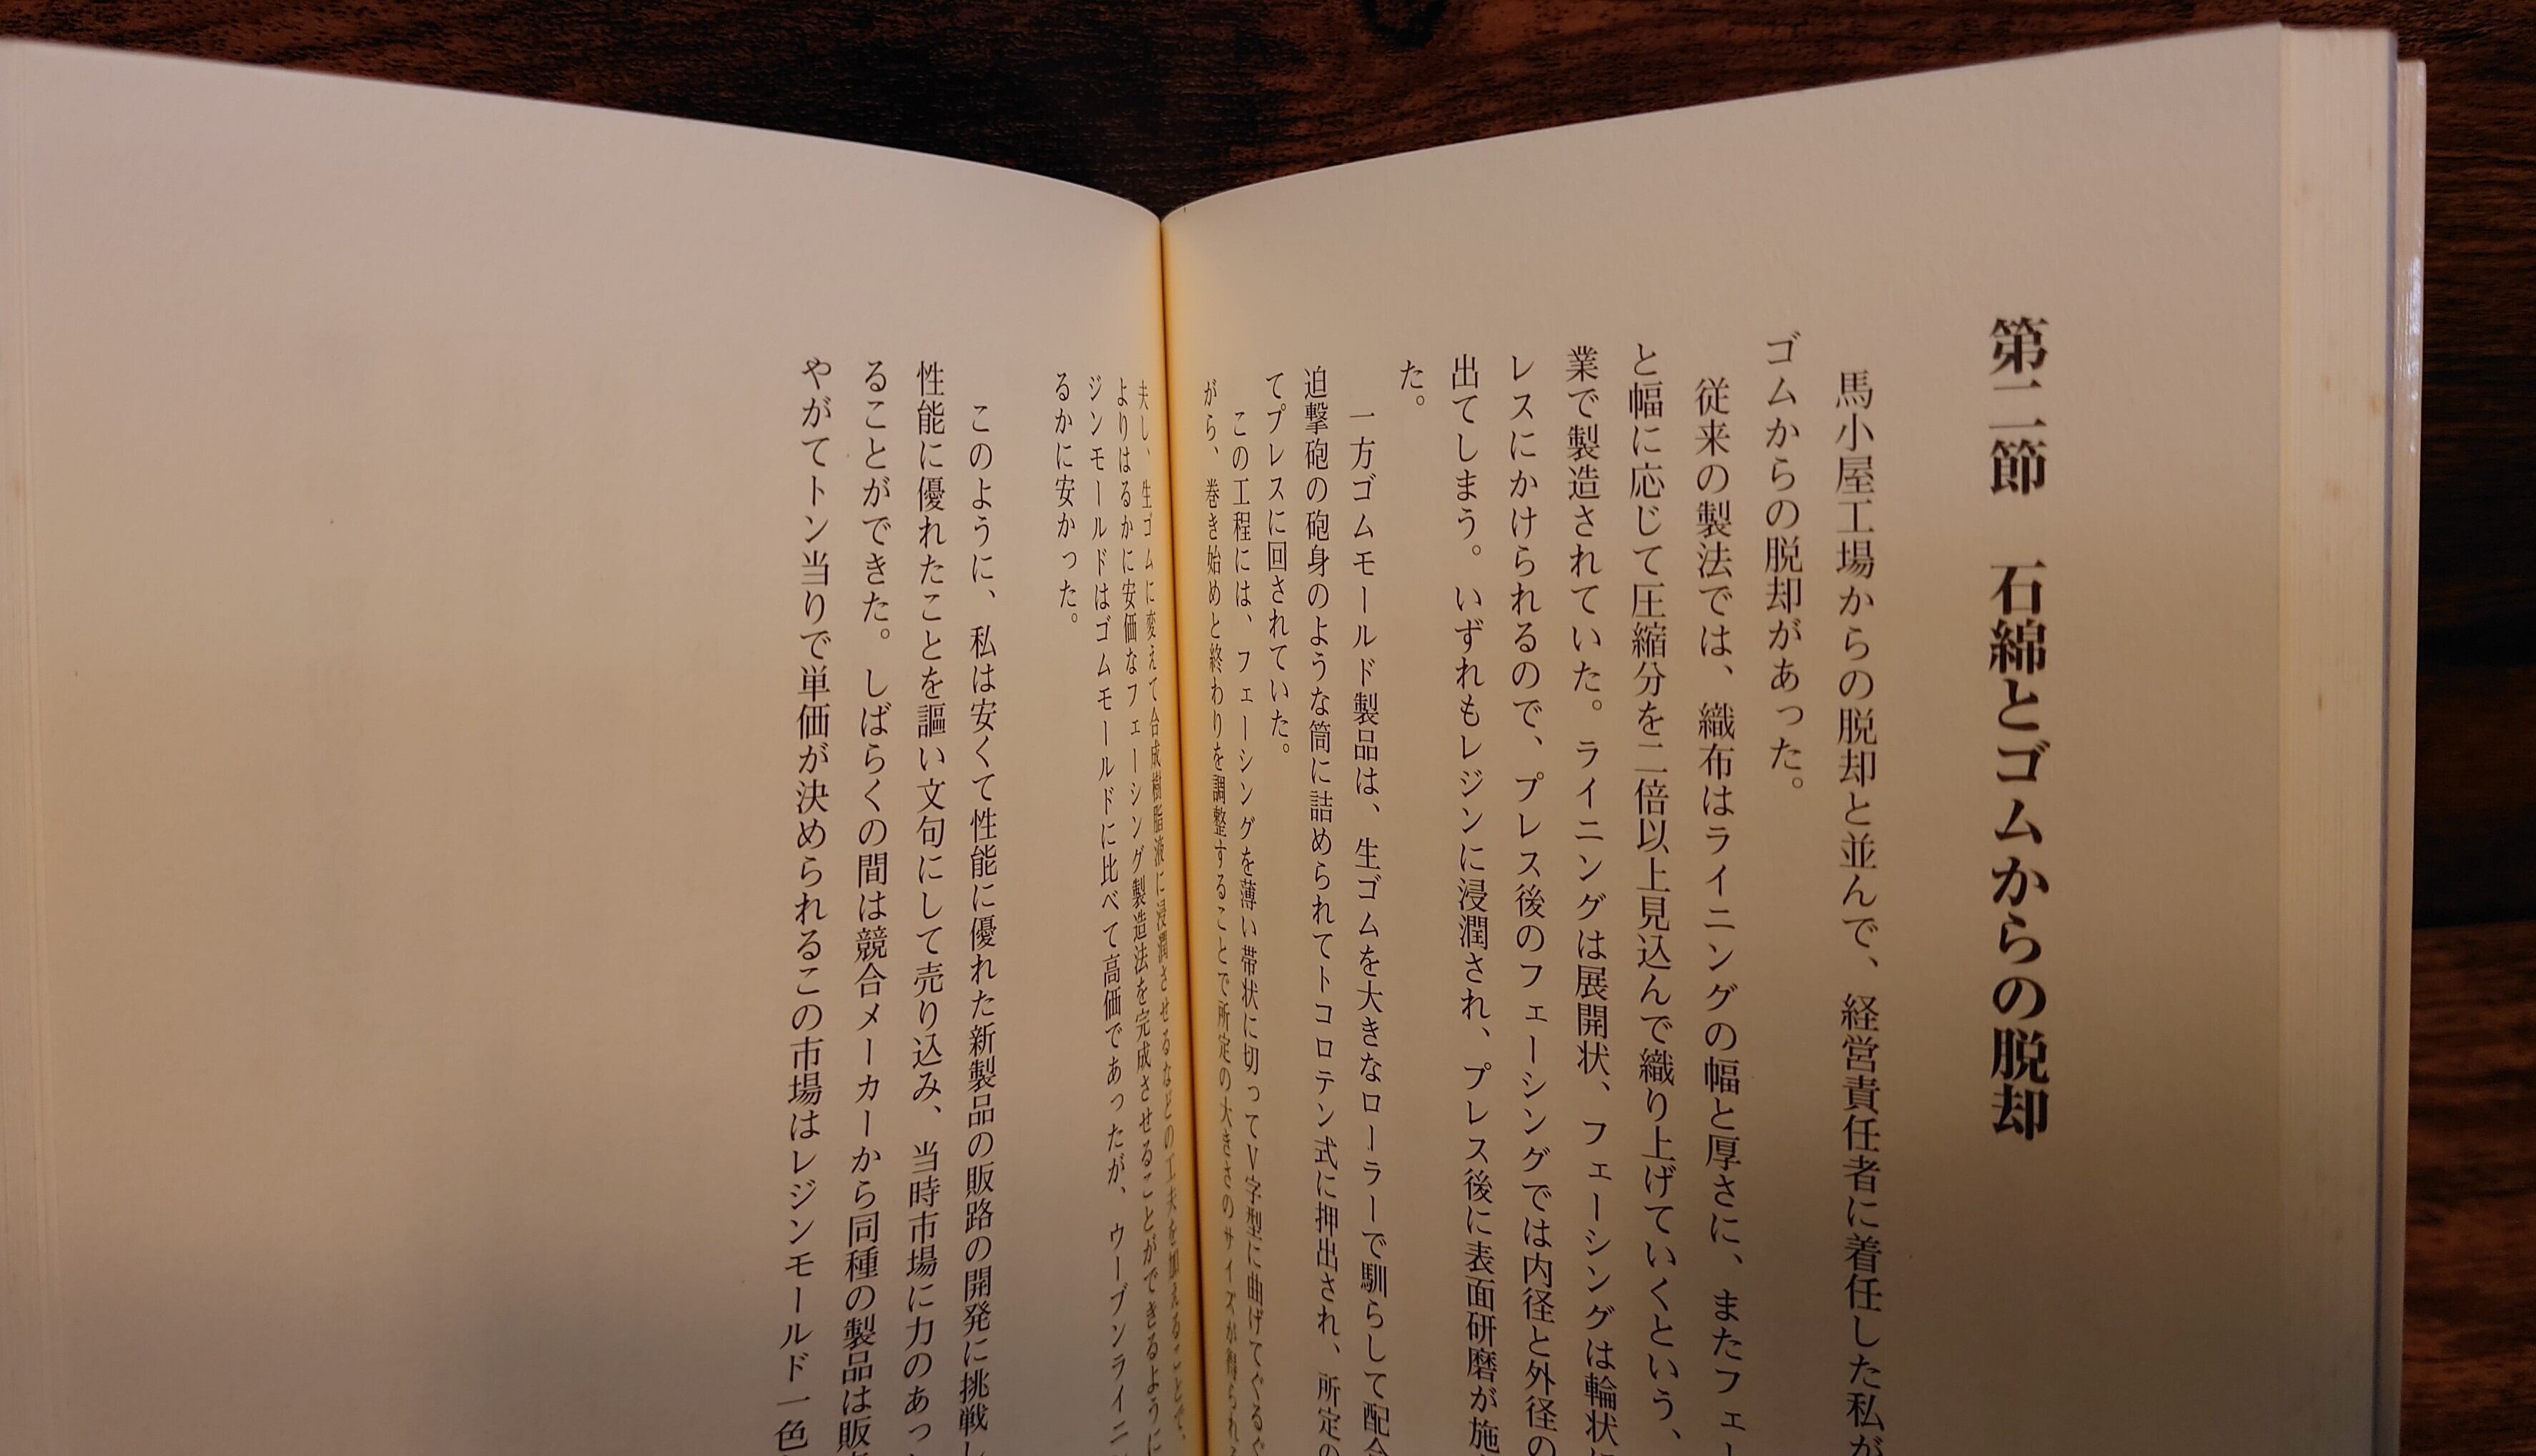 第二節　石綿とゴムからの脱却
馬小屋工場からの脱却と並んで、経営責任者に着任した私が
ゴムからの脱却があった。
従来の製法では、織布はライニングの幅と厚さに、またフェー
と幅に応じて圧縮分を二倍以上見込んで織り上げていくという、
業で製造されていた。ライニングは展開状、フェーシングは輪状に
レスにかけられるので、プレス後のフェーシングでは内径と外径の
出てしまう。いずれもレジンに浸潤され、プレス後に表面研磨が施
た。
一方ゴムモールド製品は、生ゴムを大きなローラーで馴らして配合
迫撃砲の砲身のような筒に詰められてトコロテン式に押出され、所定の
てプレスに回されていた。
この工程には、フェーシングを薄い帯状に切ってV字型に曲げてぐるぐ
がら、巻き始めと終わりを調整することで所定の大きさのサイズが得られる
夫し、生ゴムに変えて合成樹脂液に浸潤させるなどの工夫を加えることで、
よりはるかに安価なフェーシング製造法を完成させることができるように
ジンモールドはゴムモールドに比べて高価であったが、ウーブンライニ
るかに安かった。
このように、私は安くて性能に優れた新製品の販路の開発に挑戦し
性能に優れたことを謳い文句にして売り込み、当時市場に力のあっ
ることができた。しばらくの間は競合メーカーから同種の製品は販
やがてトン当りで単価が決められるこの市場はレジンモールド一色